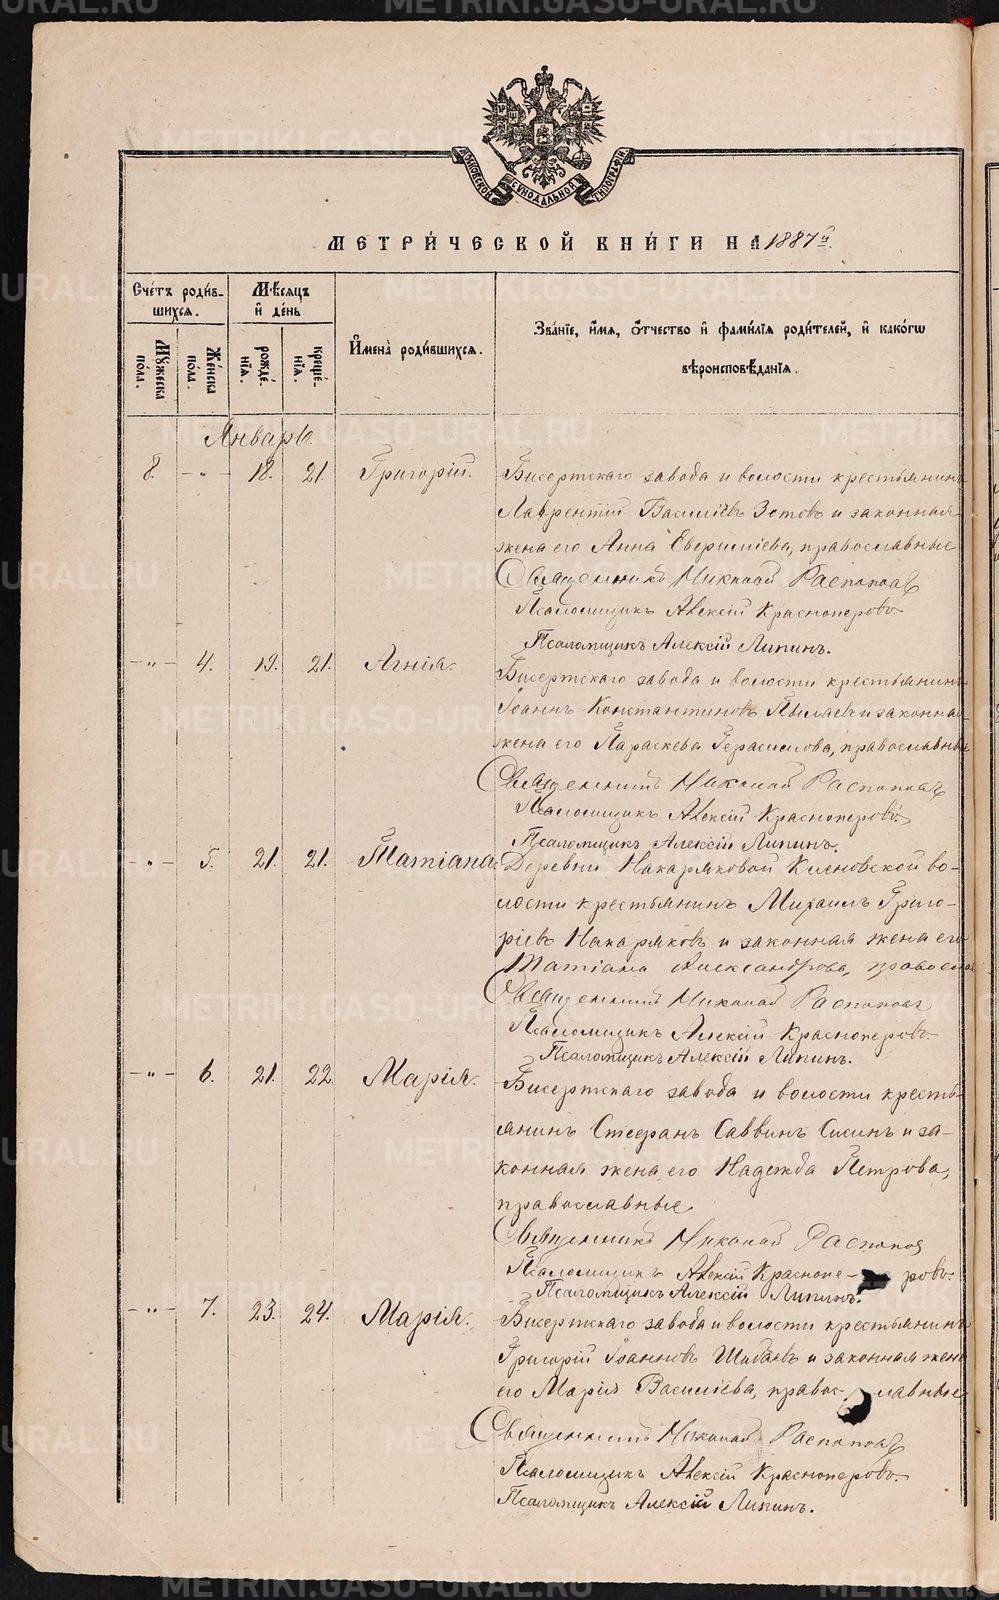 МОСКОВСКОЙ СѴНОДАЛЬНОЙ ТИПОГРАФІИ
МЕТРИ́ЧЕСКОЙ КНИ́ГИ НА 1887 й.
Сче́тъ роди́в-
шихся.
Мѣ́сяцъ
и де́нь
И҆мена̀ роди́вшихся.
Зва́нїе, и҆́мя, ѻ҆́тчество и҆ фами́лїѧ роди́телей, и҆ како́гѡ
вѣроисповѣ́данїѧ.
Мꙋ́жеска по́ла.
Же́нска по́ла.
рожде́нїѧ.
креще́нїѧ.
Январь.
8. - „ - 18. 21. Григорій. Бисертскаго завода и волости крестьянинъ
Лаврентій Василіевъ Зотовъ и законная
жена его Анна Еверилиева, православные
Священникъ Николай Распопов
Псаломщикъ Алексій Красноперовъ
Псаломщикъ Алексій Липинъ.
- „ - 4. 19. 21. Агнія. Бисертскаго завода и волости крестьянинъ
Іоаннъ Константиновъ Пылаевъ и законная
жена его Параскева Герасимова, православные
Священникъ Николай Распопов
Псаломщикъ Алексій Красноперовъ
Псаломщикъ Алексій Липинъ.
- „ - 5. 21. 21. Татіана. Деревни Накаряковой Кленовской во-
лости крестьянинъ Михаилъ Григо-
ріевъ Накаряковъ и законная жена его
Татіана Александрова, правосла
Священникъ Николай Распопов
Псаломщикъ Алексій Красноперовъ
Псаломщикъ Алексій Липинъ.
- „ - 6. 21. 22. Марія. Бисертскаго завода и волости кресть-
янинъ Стефанъ Саввинъ Сисинъ и за-
конная жена его Надежда Петрова,
православные
Священникъ Николай Распопов
Псаломщикъ Алексій Краснопе- ровъ
Псаломщикъ Алексій Липинъ.
- „ - 7. 23. 24. Марія. Бисертскаго завода и волости крестьянинъ
Григорій Іоанновъ Шибаевъ и законная жена
его Марія Василіева, правос- лавные
Священникъ Николай Распопов
Псаломщикъ Алексій Красноперовъ
Псаломщикъ Алексій Липинъ.
METRIKI.GASO-URAL.RU